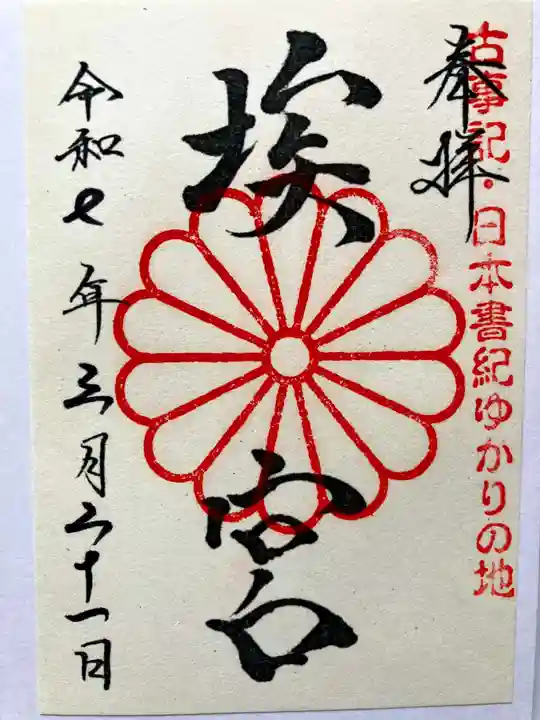 古事記・日本書紀ゆかりの地
奉拝
埃宮
令和七年三月二十一日